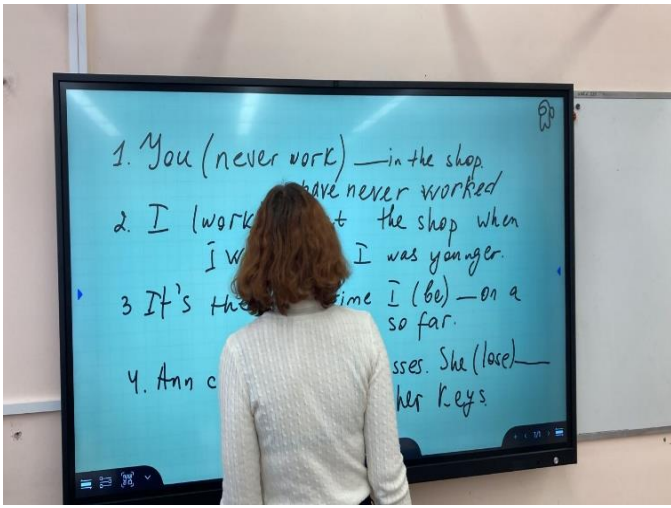 1. You (never work) — in the shop.
have never worked
2. I (work the shop when
I I was younger.
3 It's I (be) — on a
so far.
4. Ann She (lose) —
her keys.